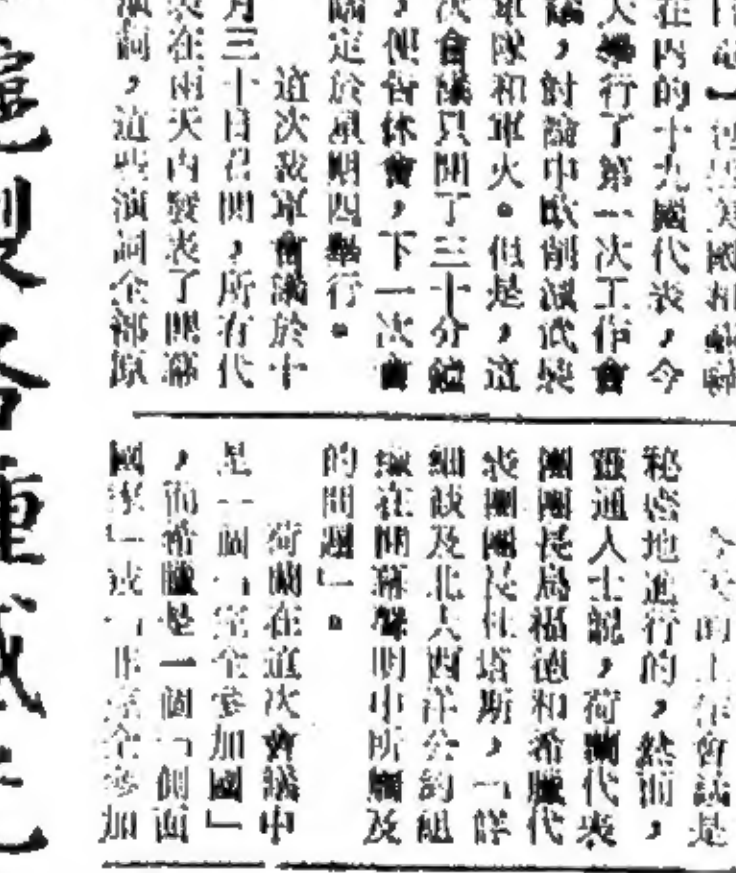 在內的十九國代表，今
天舉行了第一次工作會
議，討論中歐削減武裝
軍隊和軍火。但是，這
次會議只開了三十分鐘
，便告休會，下一次會
議定於星期四舉行。
這次裁軍會議於十
月三十日召開，所有代
表在兩天內發表了開幕
演詞，這些演詞全部原
今天的上午會議是
秘密地進行的，然而，
靈通人士說，荷蘭代表
團團長福德和希臘代
表團團長杜塔斯，「詳
細談及北大西洋公約組
織在開幕聲明中所觸及
的問題」。
荷蘭在這次會議中
是一個「完全參加國」
，而希臘是一個「側面
國家」或「非完全參加